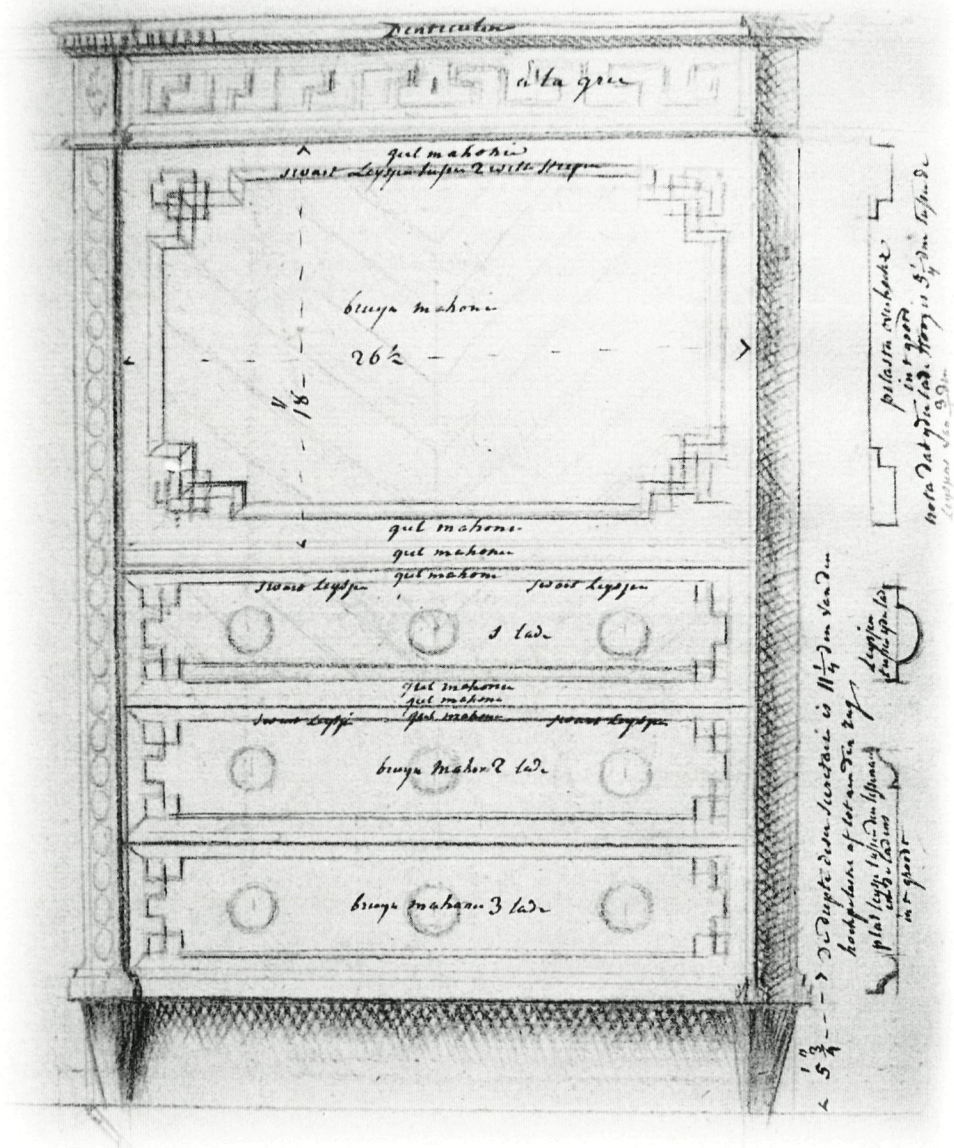 à la grec
geel mahonie
swart Leysjen tussen 2 witte strepe
bruyn mahonie
26 1/2
18
geel mahonie
geel mahonie
geel mahonie
swart Leysjen swart Leysjen
1 lade
geel mahonie
geel mahonie
geel mahonie
swart Leysje swart Leysjen
bruyn mahon 2 lade
bruyn mahonie 3 lade
pilaster
in't groot
nota dat yder lade hoog is 5 1/4 dm tussende
Leysjen
tussen yder lade
de diepte deser secretaire is 11 1/4 dm van den
hoekpilaster af tot aan den rug
plat
in de laden
in't groot
5 3/4